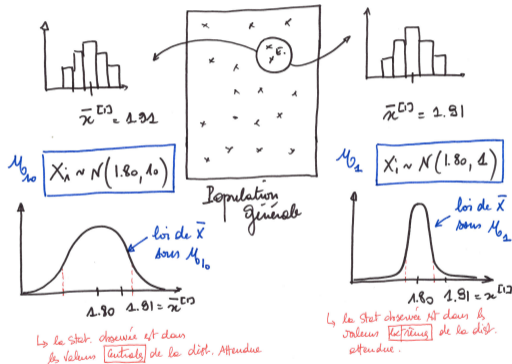 E.
x̄^[1] = 1.91
x̄^[1] = 1.91
M_10
X_i ~ N(1.80, 10)
M_1
X_i ~ N(1.80, 1)
Population
Générale
loi de X̄
sous M_10
loi de X̄
sous M_1
1.80 1.91 = x̄^[1]
1.80 1.91 = x^[1]
↳ la stat. observée est dans
les valeurs centrales de la dist. Attendue
↳ la stat observée est dans les
valeurs extrêmes de la dist.
attendue.